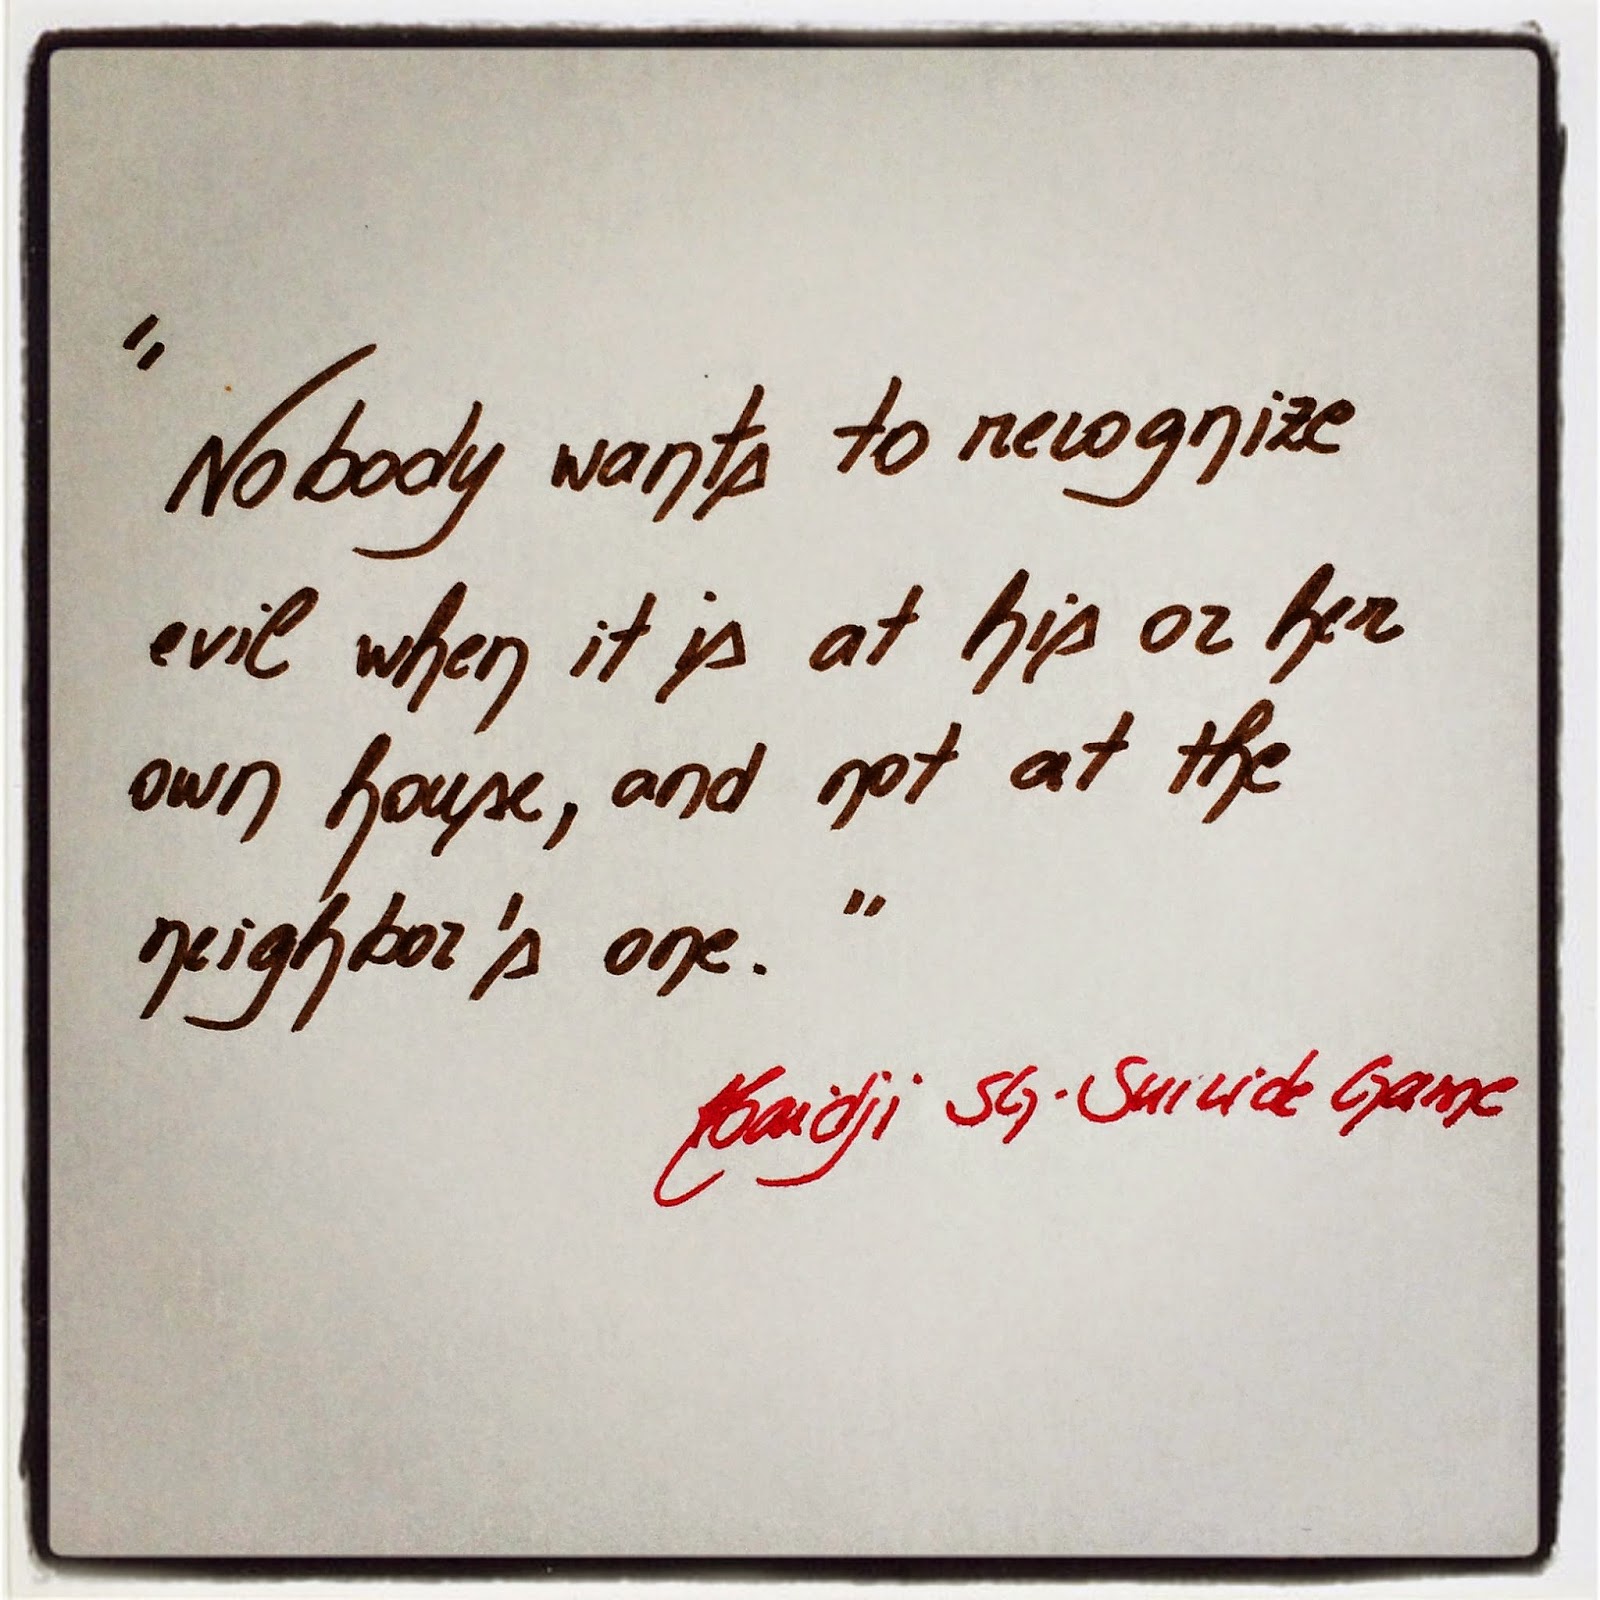 "Nobody wants to recognize
evil when it is at his or her
own house, and not at the
neighbor's one."
Haidji SG-Suicide Game